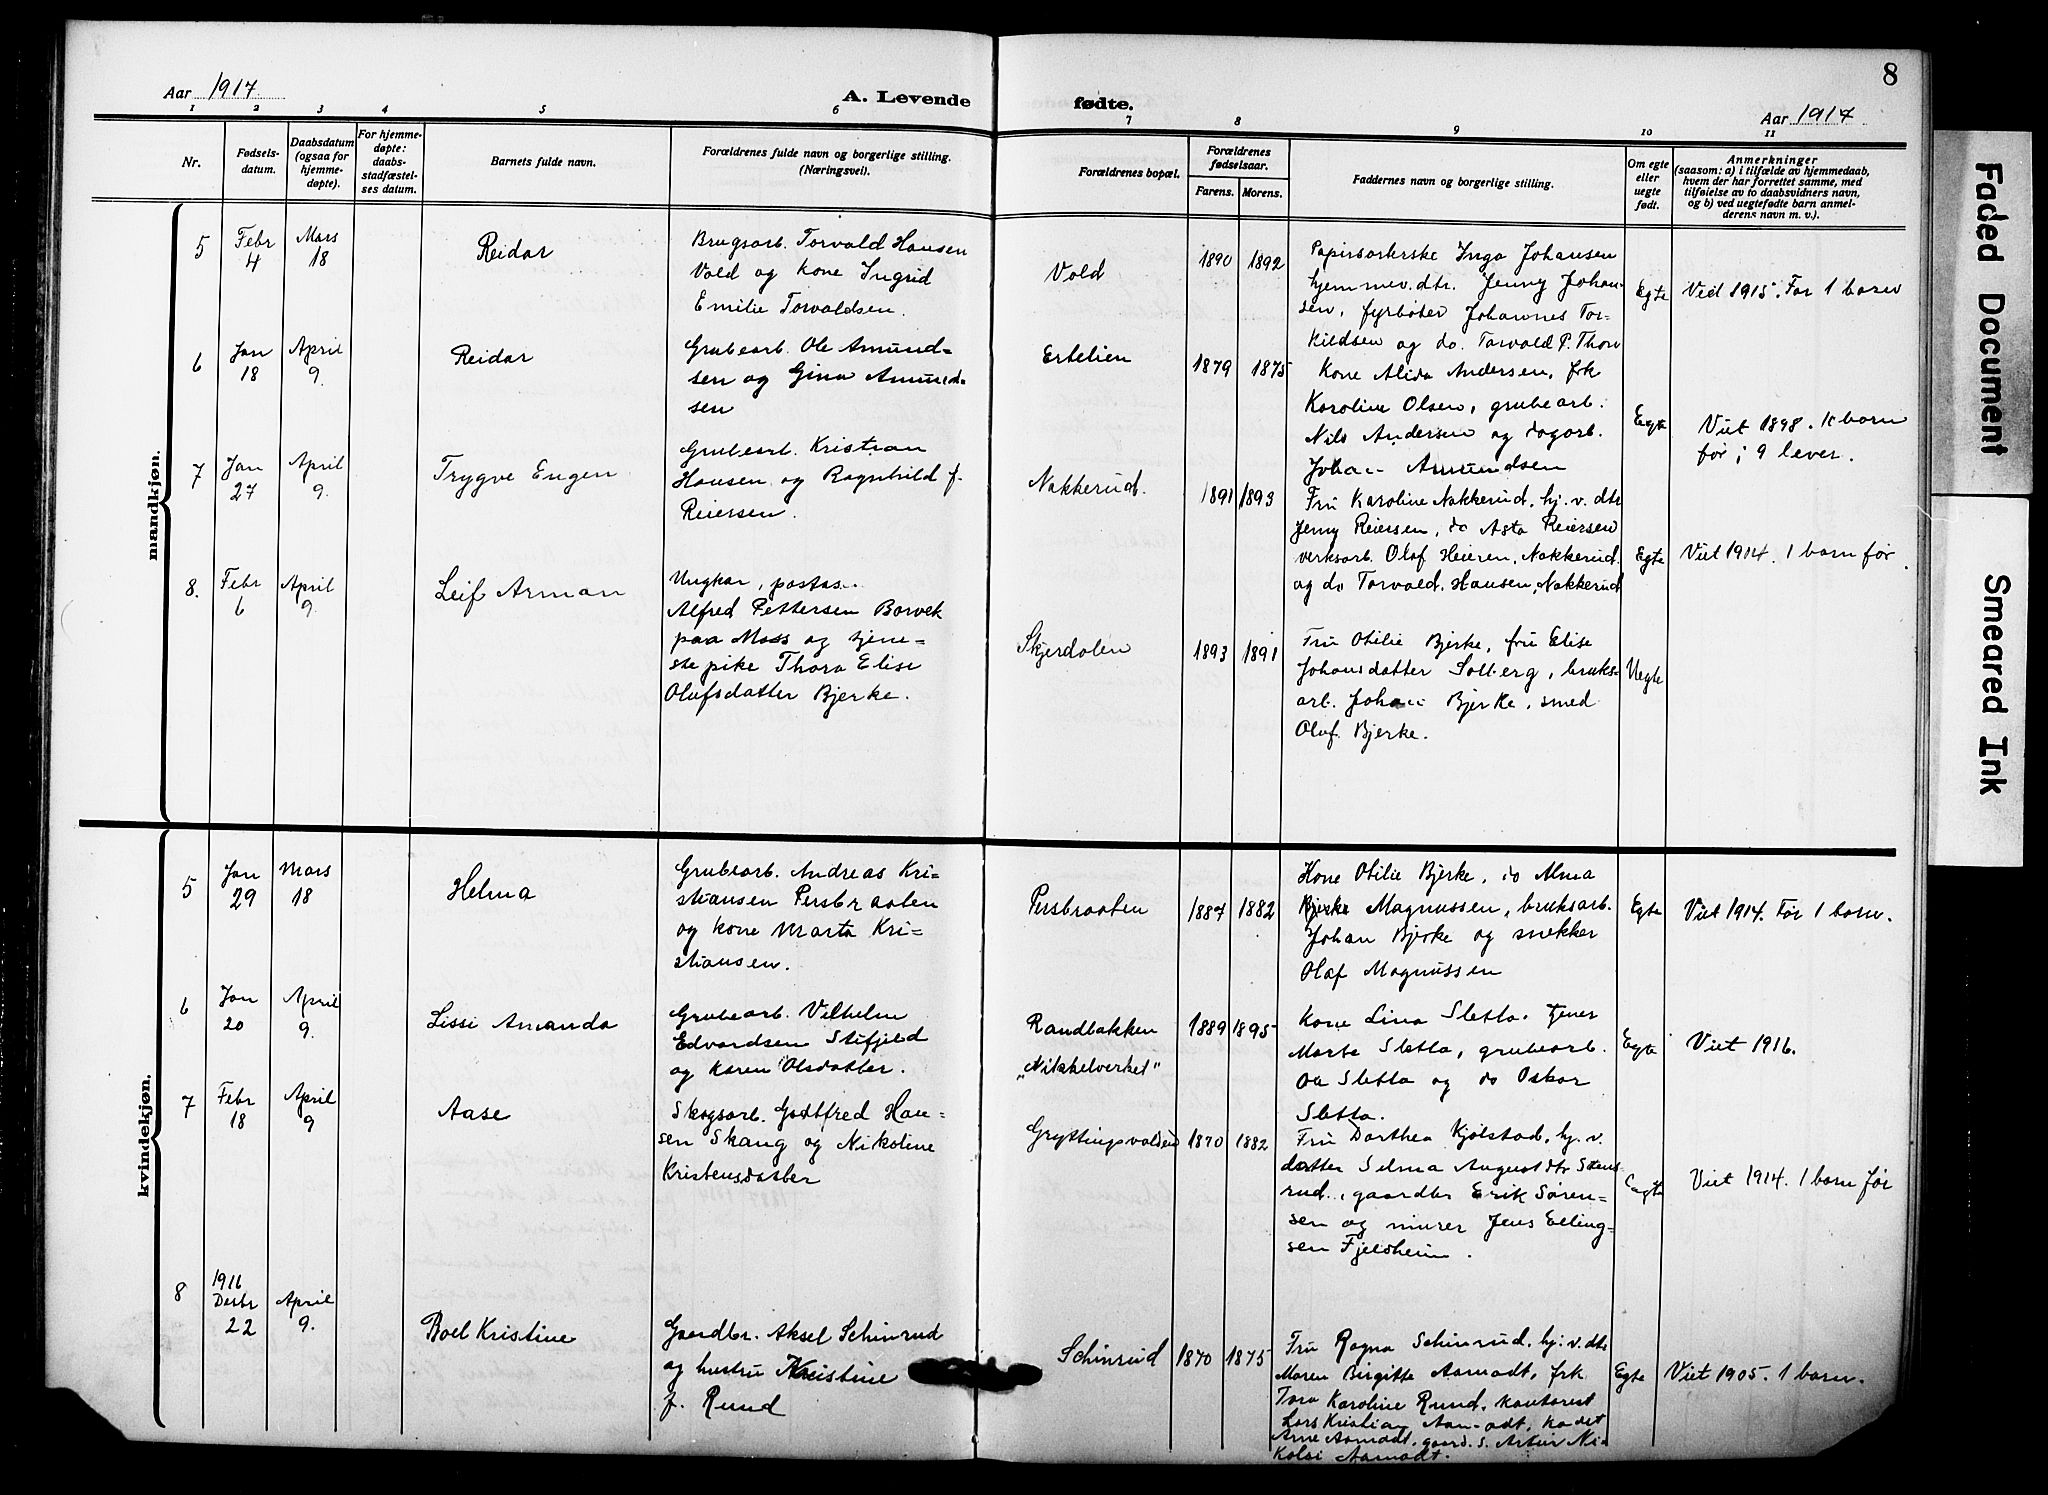 8
Aar 1917.
A. Levende fødte.
Aar 1917
1 2 3 4 5 6 7 8 9 10 11
Nr.
Fødsels-
datum.
Daabsdatum
(ogsaa for
hjemme-
døpte).
For hjemme-
døpte:
daabs-
stadfæstel-
ses datum.
Barnets fulde navn.
Forældrenes fulde navn og borgerlige stilling.
(Næringsvei).
Forældrenes bopæl.
Forældrenes
fødselsaar.
Farens. Morens.
Faddernes navn og borgerlige stilling.
Om egte
eller
uegte
født.
Anmerkninger
(saasom: a) i tilfælde av hjemmedaab,
hvem der har forrettet samme, med
tilføielse av to daabsvidners navn,
og b) ved uegtefødte barn anmel-
derens navn m. v.).
mandkjøn.
5
Febr
4
Mars
18
Reidar
Brugsarb. Torvald Hansen
Vold og kone Ingrid
Emilie Torvaldsen.
Vold
1890 1892
Papirsorterske Inga Johansen
hjemmev. dtr. Jenny Johan-
sen, fyrbøter Johannes Tor-
kildsen og do. Torvald P. Thorv
Egte
Viet 1915. Før 1 barn
6
Jan
18
April
9.
Reidar
Grubearb. Ole Amund-
sen og Gina Amund-
sen
Ertelien
1879 1875
Kone Alida Andersen, frk
Karoline Olsen, grubearb.
Nils Andersen og dagarb.
Johan Amundsen
Egte
Viet 1898. 10 barn
før; 9 lever.
7
Jan
27
April
9.
Trygve Eugen
Grubearb. Kristian
Hansen og Ragnhild f.
Reiersen.
Nakkerud.
1891 1893
Fru Karoline Nakkerud, hj. v. dtr
Jenny Reiersen, do Asta Reiersen
verksarb. Olaf Heieren, Nakkerud.
og do Torvald Hansen, Nakkerud
Egte
Viet 1914. 1 barn før.
8.
Febr
6
April
9.
Leif Arman
Ungkar, postas.
Alfred Pettersen Borvek
paa Moss og tjene-
stepike Thora Elise
Olufsdatter Bjerke.
Skjerdalen
1893 1891
Fru Otilie Bjerke, fru Elise
Johansdatter Solberg, bruks-
arb. Johan Bjerke, smed
Oluf Bjerke.
Uegte
kvindekjøn.
5
Jan
29
Mars
18
Helma
Grubearb. Andreas Kri-
stiansen Persbraaten
og kone Marta Kri-
stiansen.
Persbraaten
1887 1882
Kone Otilie Bjerke, do Alma
Magnussen, bruksarb.
Johan Bjerke og snekker
Olaf Magnussen
Egte
Viet 1914. Før 1 barn.
6
Jan
20
April
9.
Lissi Amanda
Grubearb. Vilhelm
Edvardsen Stifjeld
og Karen Olsdatter.
Randbakken
„Nikkelverket"
1889 1895
Kone Lina Sletta, tjener
Marte Sletta, grubearb.
Ole Sletta og do Oskar
Sletta.
Egte
Viet 1916.
7
Febr
18
April
9
Aase
Skogsarb. Godtfred Han-
sen Skaug og Nikoline
Kristensdatter
Gryttingsvolden
1870 1882
Fru Dorthea Kjølstad, hj. v.
datter Selma Augustdtr Stens-
rud, gaardbr Erik Søren-
sen og murer Jens Elling-
sen Fjeldheim.
Egte
Viet 1914. 1 barn før
8
1916
Desbr
22
April
9.
Boel Kristine
Gaardbr. Aksel Schinrud
og hustru Kristine
f. Rund
Schinrud
1870 1875
Fru Ragna Schinrud, hj. v. dtr
Maren Birgitte Aamodt, frk
Tora Karoline Rund, kontorist
Lars Kristian Aamodt, kadet
Arne Aamodt, gaard. s. Artur Ni-
kolai Aamodt.
Egte
Viet 1905. 1 barn.
Faded Document
Smeared Ink